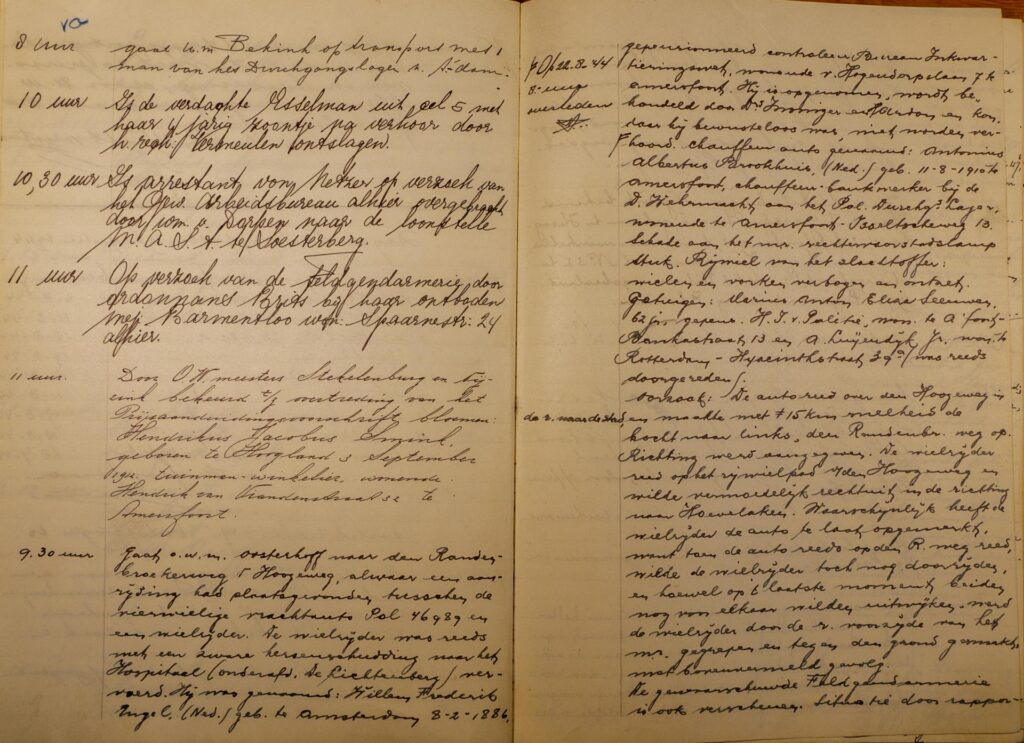 8 uur gaat o.w.m. Bekink op transport met 1
man van het Durchgangslager n. A'dam.
10 uur Is de verdachte Esselman uit cel 5 met
haar 4 jarig zoontje na verhoor door
h. rech. Vermeulen ontslagen.
10,30 uur Is arrestant von Netzer op verzoek van
het Gew. Arbeidsbureau alhier overgebracht
door o.w.m. v. Dorpen naar de
te Soesterberg.
11 uur Op verzoek van de Feldgendarmerie door
ordonnans Brits bij haar ontboden
mej. Barmentloo won: Spaarnestr: 24
alhier.
11 uur. Door O.W. meesters Stekelenburg en
bekeurd t/z overtreding van het
Prijsaanduidingsvoorschrift bloemen:
Hendrikus Jacobus Smink,
geboren te Hoogland 3 September
tuinman-winkelier, wonende
Hendrik van Viandenstraat 32 te
Amersfoort.
9.30 uur Gaat o.w.m. Oosterhoff naar den Randen-
broekerweg Hoogeweg, alwaar een aan-
rijding had plaatsgevonden tusschen de
vierwielige vrachtauto Pol 46989 en
een wielrijder. De wielrijder was reeds
met een zware hersenschudding naar het
Hospitaal (onderafd. De Lichtenberg) ver-
voerd. Hij was genaamd: Willem Frederik
Engel, (Ned.) geb. te Amsterdam 8-2-1886,
gepensionneerd controleur Bureau Inkwar-
tieringswet, wonende v. Hogendorplaan 7 te
Op 22.3.44
8- uur
overleden
Amersfoort. Hij is opgenomen, wordt be-
handeld door Drs en kon,
daar hij bewusteloos was, niet worden ver-
hoord. Chauffeur auto genaamd: Antonius
Albertus Brookhuis, (Ned.) geb. 11-8-1910 te
Amersfoort, chauffeur-bankwerker bij de
D. Wehrmacht aan het Pol. Durchgs. Lager,
wonende te Amersfoort - 13.
Schade aan het m.r. rechtervoorstadslamp
stuk. Rijwiel van het slachtoffer:
wielen en vorken verbogen en ontzet.
Getuigen: Marinus Anton Elisa Leeuwen,
62 jr. gepens. H.I.v. Politie, won. te A'foort -
Bankastraat 13 en A. Luijendijk Jr. won. te
Rotterdam - Hyacinthstraat 39a (was reeds
doorgereden).
Oorzaak: De auto reed over den Hoogeweg in
de r. naar de stad, en maakte met ± 15 km snelheid de
bocht naar links, den Randenbr. weg op.
Richting werd aangegeven. De wielrijder
reed op het rijwielpad v/den Hoogeweg en
wilde vermoedelijk rechtuit in de richting
naar Hoevelaken. Waarschijnlijk heeft de
wielrijder de auto te laat opgemerkt,
want toen de auto reeds op den R. weg reed,
wilde de wielrijder toch nog doorrijden,
en hoewel op 't laatste moment beiden
nog voor elkaar wilden uitwijken, werd
de wielrijder door de r. voorzijde van het
m.r. gegrepen en tegen den grond gesmakt,
met bovenvermeld gevolg.
De gewaarschuwde Feldgendarmerie
is ook verschenen. Situatie door rappor-